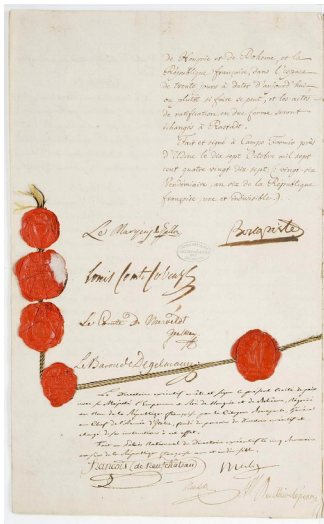 de Hongrie et de Bohême, et la
République française, dans l'espace
de trente jours à dater d'aujourd'hui
ou plutôt si faire se peut, et les actes
de ratification en due forme seront
échangés à Rastadt.
Fait et signé à Campo Formio près
d'Udine le dix sept Octobre mil sept
cent quatre vingt dix sept (vingt-six
Vendémiaire, an six de la République
française, une et indivisible.)
Le Marquis de Gallo
Bonaparte
Louis Comte Cobenzl
Le Comte de Merveldt
Le Baron de Degelmann
Le Directoire exécutif arrête et signe le présent traité de paix
avec sa Majesté l'Empereur Roi de Hongrie et de Bohême, Négocié
au Nom de la République française par le Citoyen Bonaparte, Général
en Chef de l'Armée d'Italie, fondé de pouvoirs du Directoire exécutif et
chargé de ses instructions à cet effet.
Fait au Palais National du Directoire exécutif le
François (de Neufchâteau)